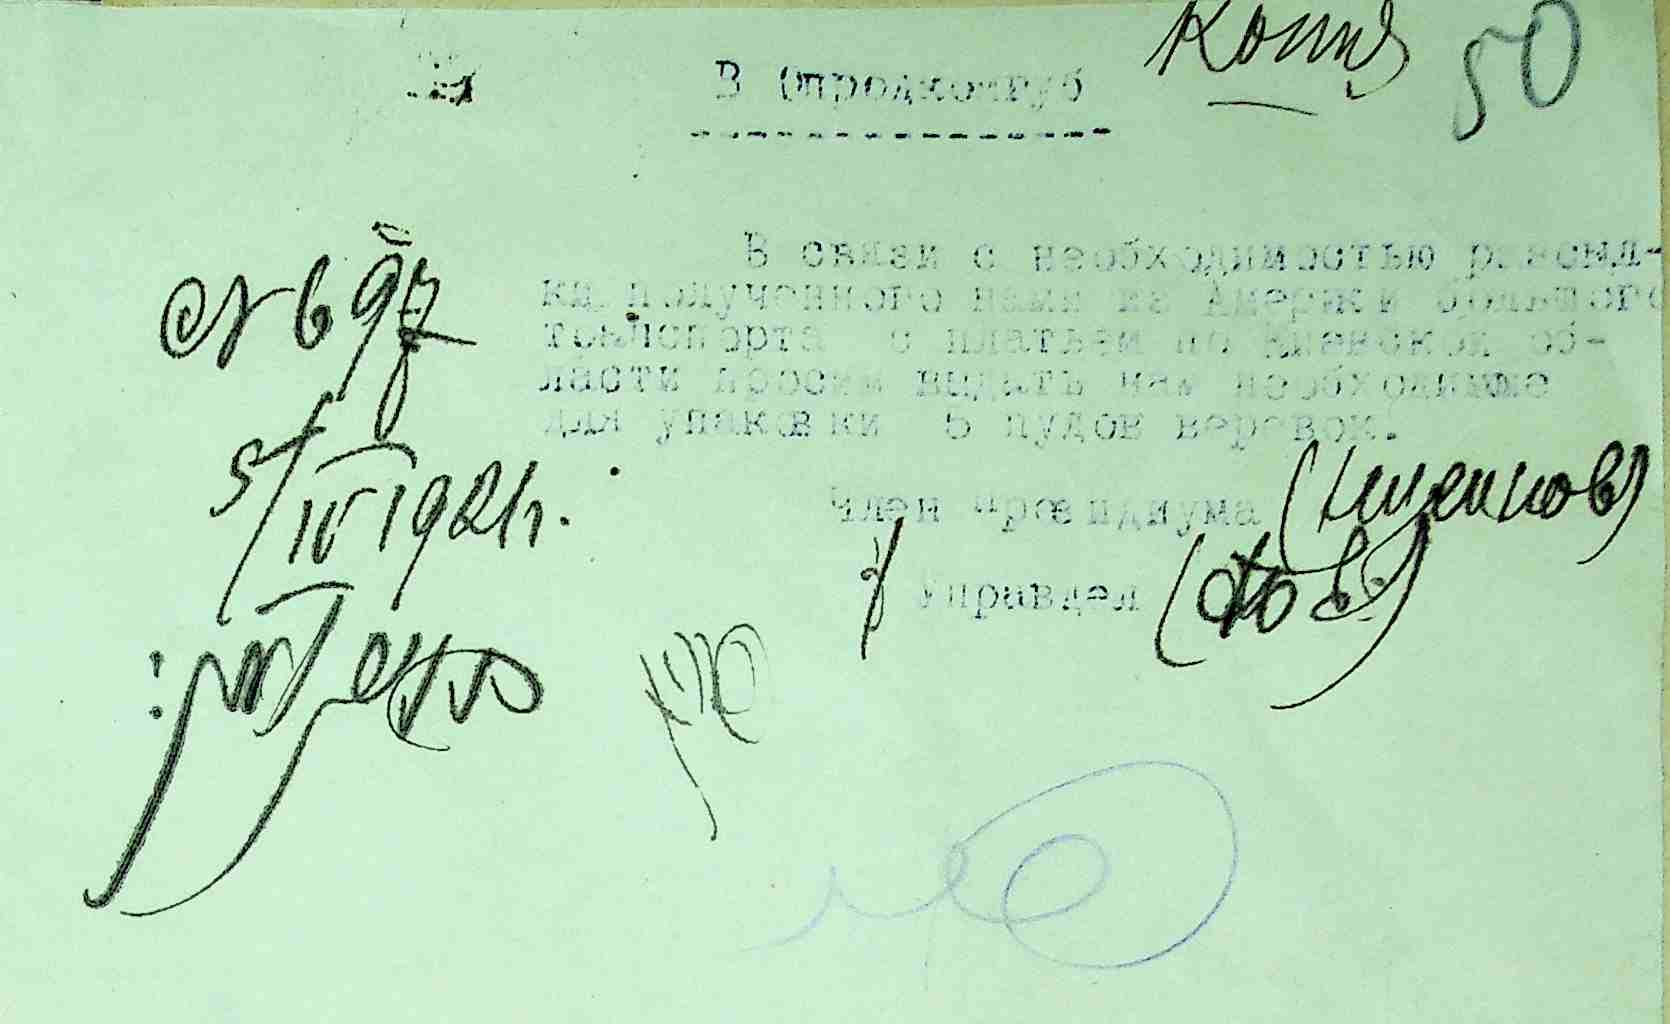 Копия
50
В Опродкомгуб
№ 697
5/IV 1921 г.
В связи с необходимостью рассыл-
ки полученного нами из Америки большого
транспорта с платьем по Киевской об-
ласти просим выдать нам необходимые
для упаковки 5 пудов веревок.
Член Президиума
Управдел